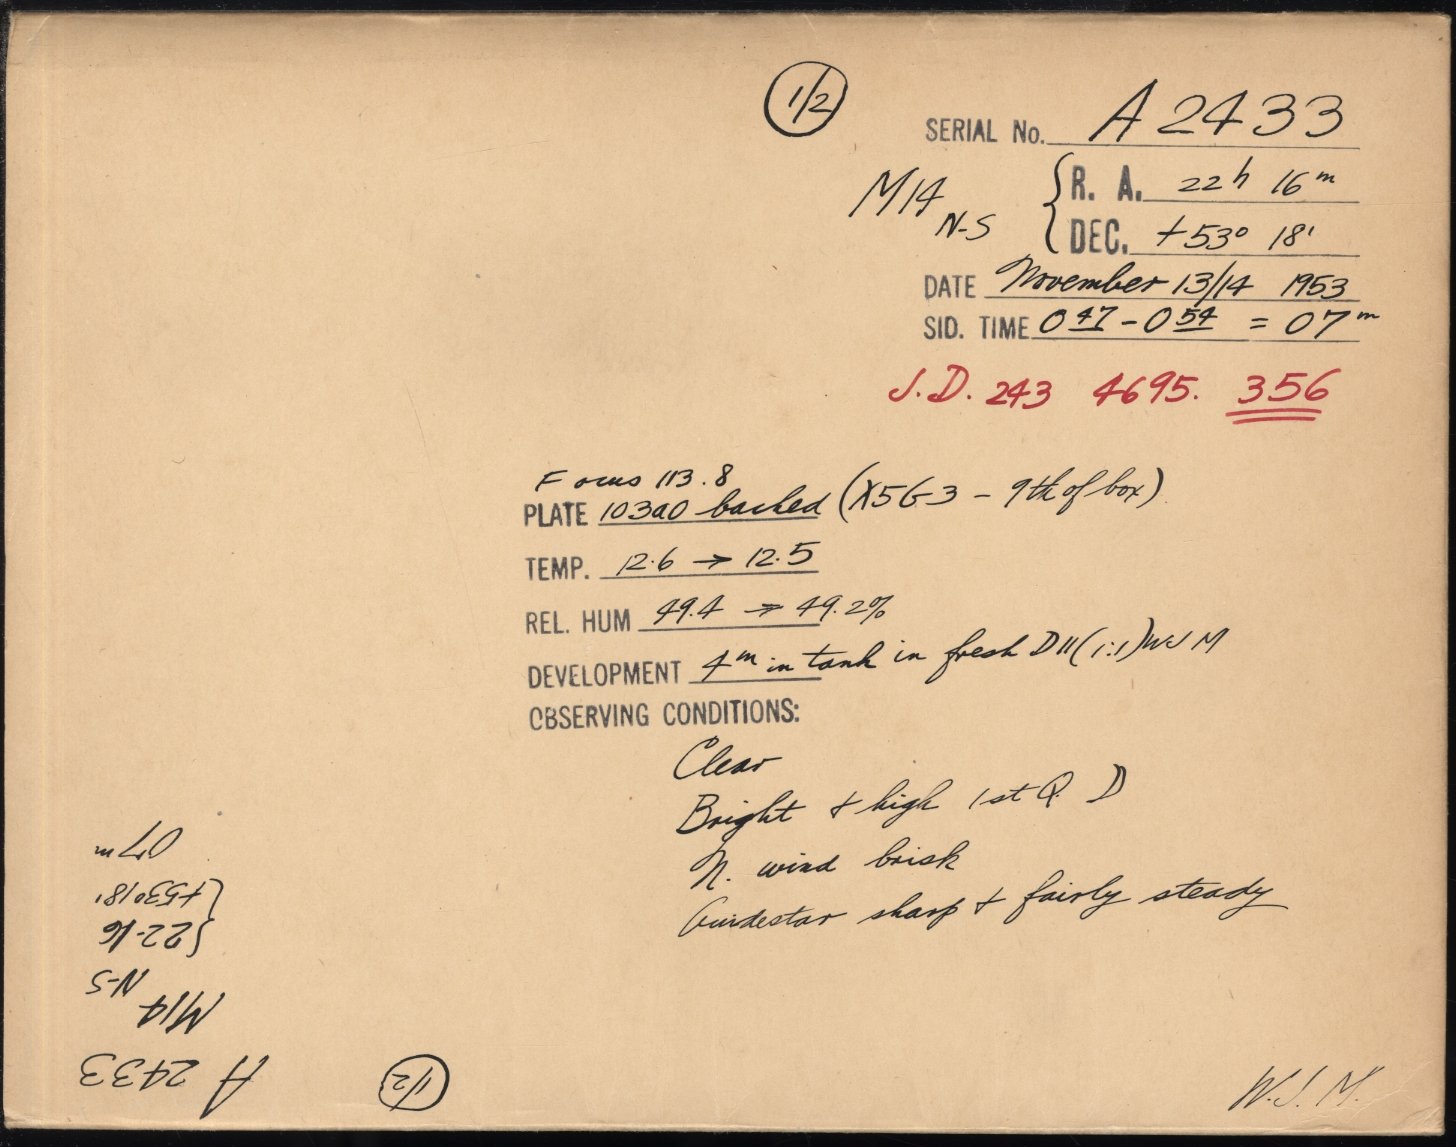 1/2
SERIAL No. A 2433
M14 N-S { R. A. 22h 16m
DEC. +53° 18'
DATE November 13/14 1953
SID. TIME 0 47 - 0 54 = 07m
J.D. 243 4695. 356
Focus 113.8
PLATE 103a0 backed (X5G3 - 9th of box)
TEMP. 12.6 → 12.5
REL. HUM 49.4 → 49.2%
DEVELOPMENT 4m in tank in fresh D11 (1:1) WJM
OBSERVING CONDITIONS:
Clear
Bright + high 1st Q. D
N. wind brisk
Guidestar sharp + fairly steady
W.J.M.
1/2
A 2433
M14
N-S
{22-16
{+53°18'
07m